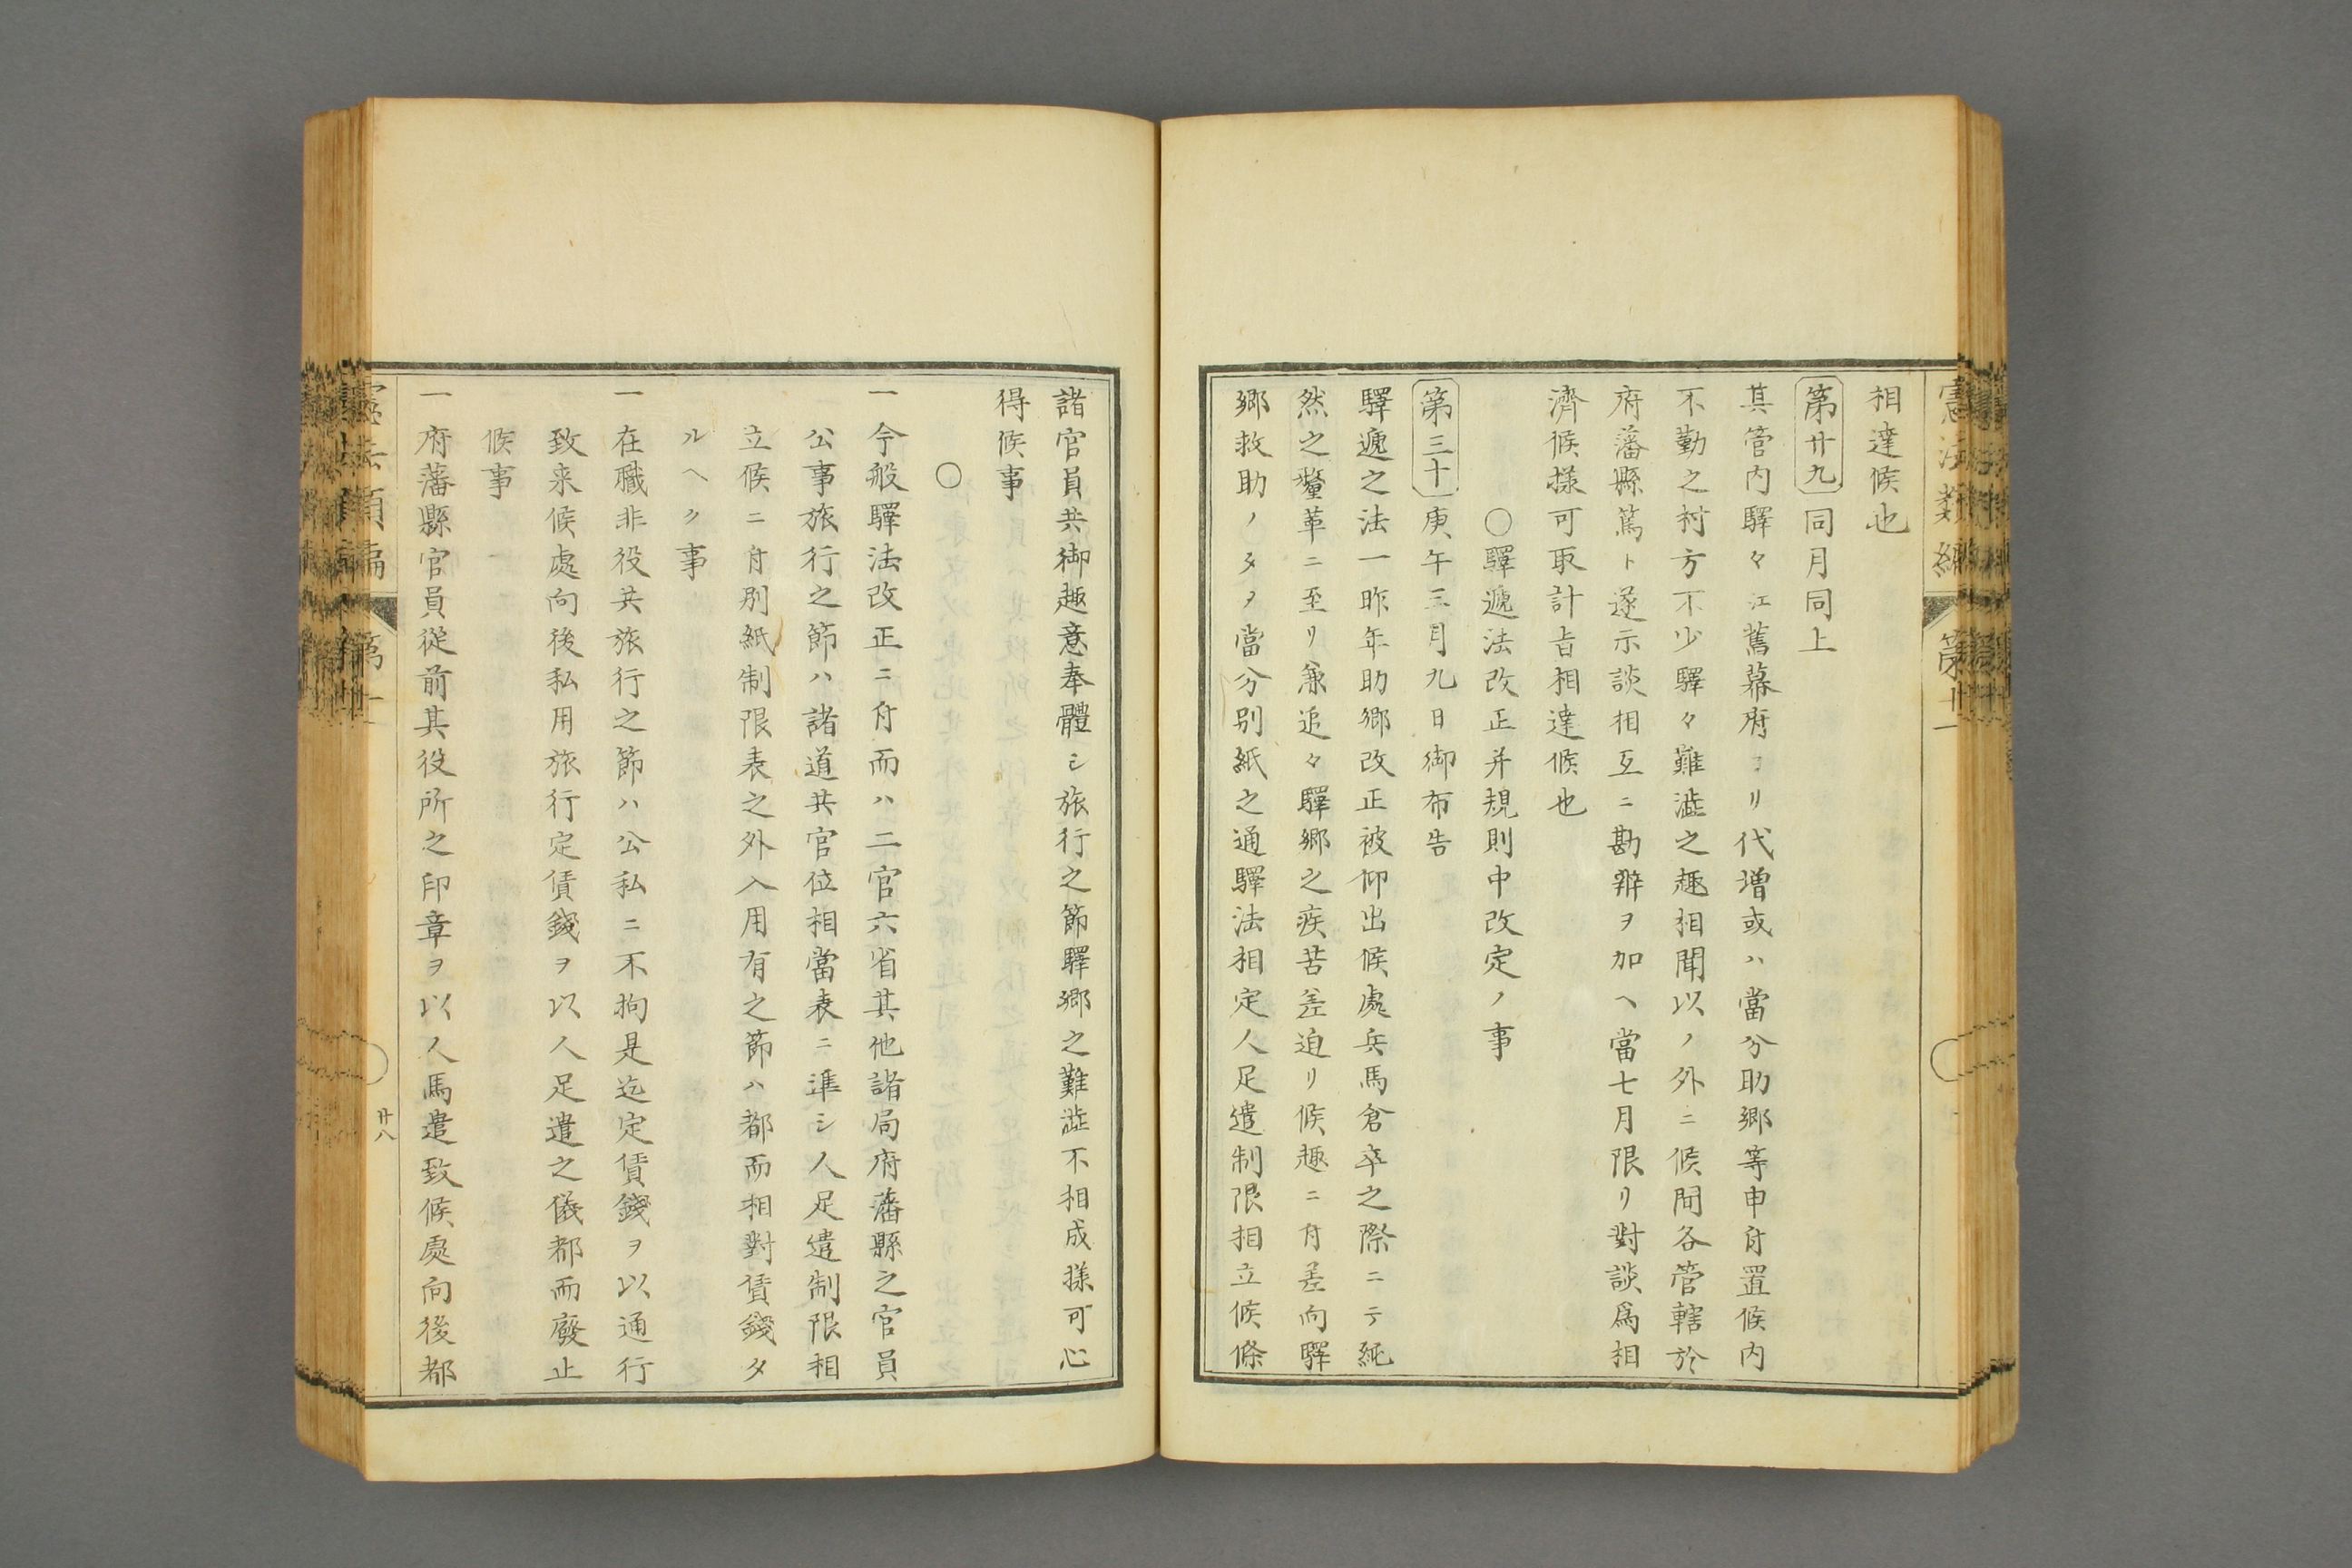 憲法類編 第廿一
相達候也
第廿九 同月同上
其管内驛々江舊幕府ヨリ代増或ハ當分助郷等申付置候内
不勤之村方不少驛々難澁之趣相聞以ノ外ニ候間各管轄於
府藩縣篤ト遂示談相互ニ勘辨ヲ加ヘ當七月限リ對談爲相
濟候様可取計旨相達候也
〇驛遞法改正并規則中改定ノ事
第三十 庚午三月九日御布告
驛遞之法一昨年助郷改正被仰出候處兵馬倉卒之際ニテ純
然之釐革ニ至リ兼追々驛郷之疾苦差迫リ候趣ニ付差向驛
郷救助ノタヲ當分別紙之通驛法相定人足遣制限相立候條
諸官員共御趣意奉體シ旅行之節驛郷之難澁不相成様可心
得候事
〇
一今般驛法改正ニ付而ハ二官六省其他諸局府藩縣之官員
公事旅行之節ハ諸道共官位相當表ニ準シ人足遣制限相
立候ニ付別紙制限表之外入用有之節ハ都而相對賃錢タ
ルヘク事
一在職非役共旅行之節ハ公私ニ不拘是迄定賃錢ヲ以通行
致来候處向後私用旅行定賃錢ヲ以人足遣之儀都而廢止
候事
一府藩縣官員從前其役所之印章ヲ以人馬遣致候處向後都
憲法類編 第廿一
廿八